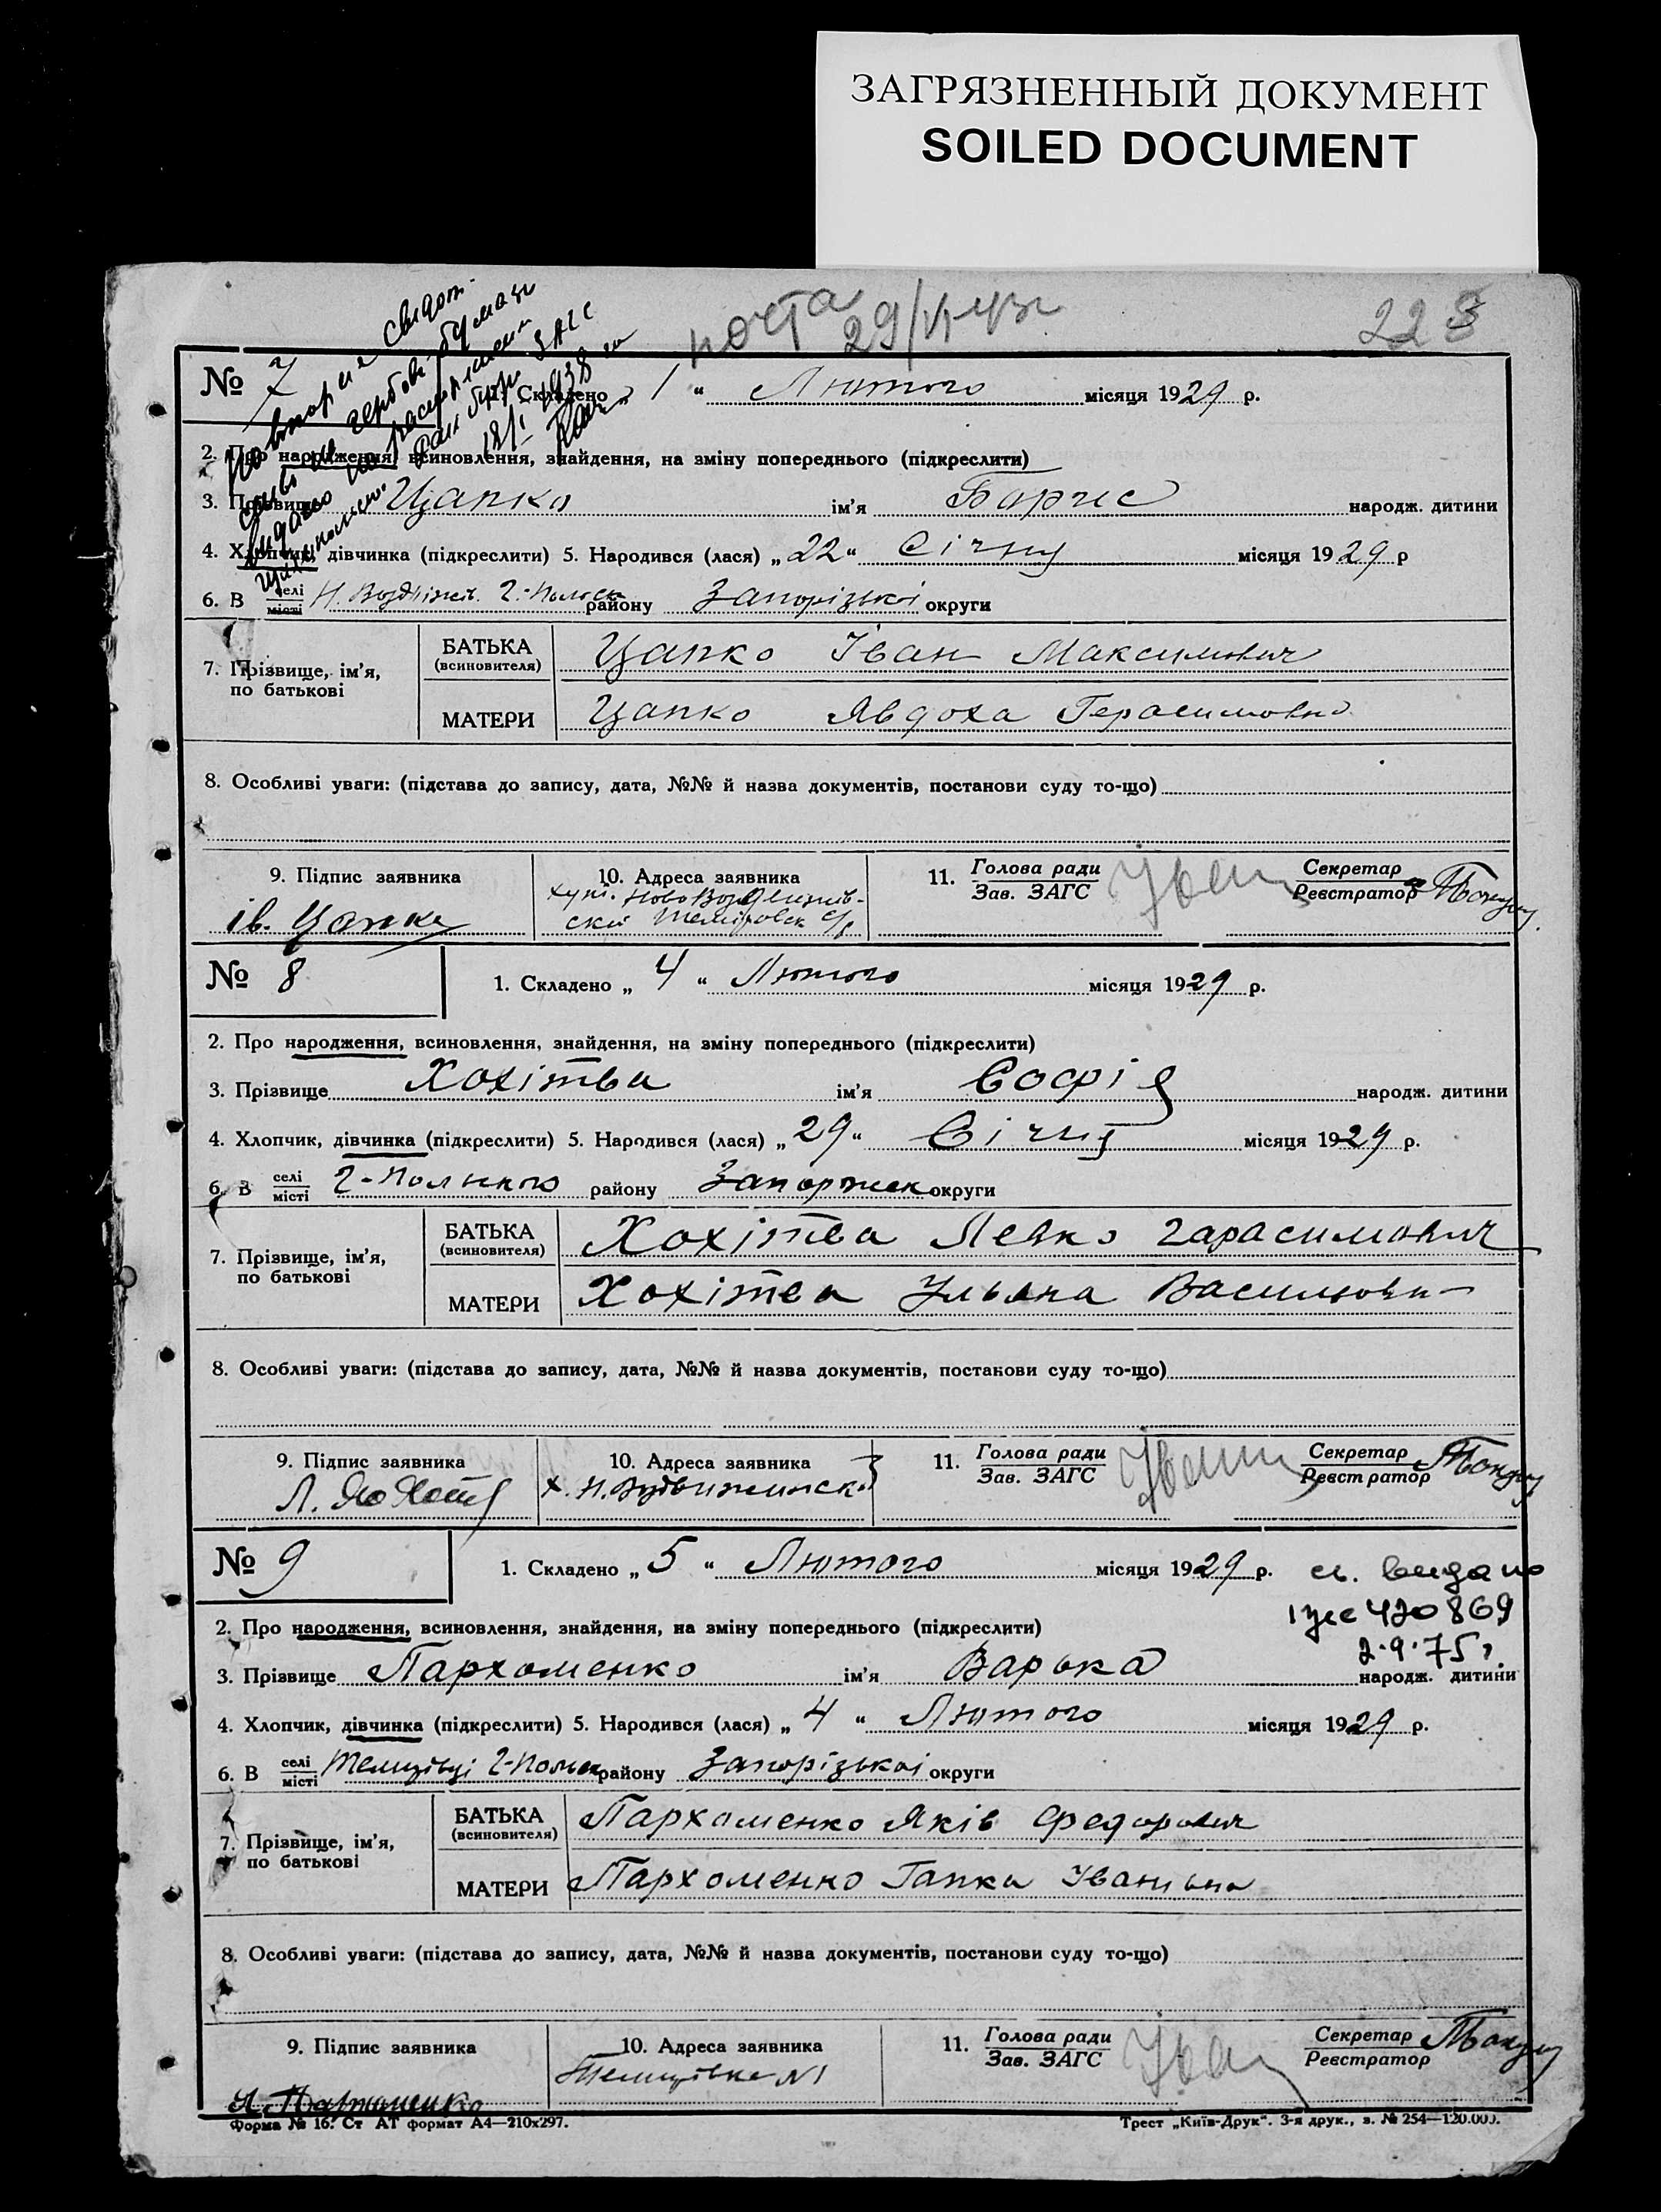 ЗАГРЯЗНЕННЫЙ ДОКУМЕНТ
SOILED DOCUMENT
223
№ 7
1. Складено „ 1 “ Лютого місяця 1929 р.
2. Про народження, всиновлення, знайдення, на зміну попереднього (підкреслити)
3. Прізвище Цапко ім'я Борис народж. дитини
4. Хлопчик, дівчинка (підкреслити) 5. Народився (лася) „ 22 “ Січня місяця 1929 р
6. В селі місті району Запорізької округи
7. Прізвище, ім'я, по батькові
БАТЬКА (всиновителя) Цапко Іван Максимович
МАТЕРИ Цапко Явдоха Герасимовна
8. Особливі уваги: (підстава до запису, дата, №№ й назва документів, постанови суду то-що)
9. Підпис заявника
Ів. Цапко
10. Адреса заявника
11. Голова ради Зав. ЗАГС
Секретар Реєстратор
№ 8
1. Складено „ 4 “ Лютого місяця 1929 р.
2. Про народження, всиновлення, знайдення, на зміну попереднього (підкреслити)
3. Прізвище Хохітва ім'я Софія народж. дитини
4. Хлопчик, дівчинка (підкреслити) 5. Народився (лася) „ 29 “ Січня місяця 1929 р.
6. В селі місті району Запорізк округи
7. Прізвище, ім'я, по батькові
БАТЬКА (всиновителя) Хохітва Левко Гарасимович
МАТЕРИ Хохітва Ульяна Васильовн
8. Особливі уваги: (підстава до запису, дата, №№ й назва документів, постанови суду то-що)
9. Підпис заявника
10. Адреса заявника
11. Голова ради Зав. ЗАГС
Секретар Реєстратор
№ 9
1. Складено „ 5 “ Лютого місяця 1929 р.
св. видано
420869
2.9.75 г.
2. Про народження, всиновлення, знайдення, на зміну попереднього (підкреслити)
3. Прізвище Пархоменко ім'я Варька народж. дитини
4. Хлопчик, дівчинка (підкреслити) 5. Народився (лася) „ 4 “ Лютого місяця 1929 р.
6. В селі місті району Запорізької округи
7. Прізвище, ім'я, по батькові
БАТЬКА (всиновителя) Пархоменко Яків Федорович
МАТЕРИ Пархоменко Гапка Іванівна
8. Особливі уваги: (підстава до запису, дата, №№ й назва документів, постанови суду то-що)
9. Підпис заявника
10. Адреса заявника
11. Голова ради Зав. ЗАГС
Секретар Реєстратор
Форма № 16. Ст АТ формат А4—210х297.
Трест „Київ-Друк“. 3-я друк., з. № 254—120.000.